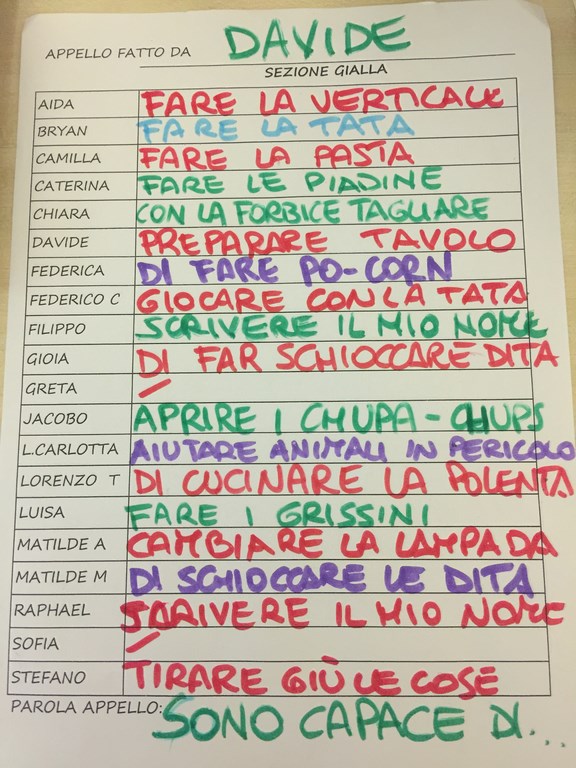 APPELLO FATTO DA DAVIDE
SEZIONE GIALLA
AIDA FARE LA VERTICALE
BRYAN FARE LA TATA
CAMILLA FARE LA PASTA
CATERINA FARE LE PIADINE
CHIARA CON LA FORBICE TAGLIARE
DAVIDE PREPARARE TAVOLO
FEDERICA DI FARE PO-CORN
FEDERICO C GIOCARE CON LA TATA
FILIPPO SCRIVERE IL MIO NOME
GIOIA DI FAR SCHIOCCARE DITA
GRETA /
JACOBO APRIRE I CHUPA-CHUPS
L.CARLOTTA AIUTARE ANIMALI IN PERICOLO
LORENZO T DI CUCINARE LA POLENTA
LUISA FARE I GRISSINI
MATILDE A CAMBIARE LA LAMPADA
MATILDE M DI SCHIOCCARE LE DITA
RAPHAEL SCRIVERE IL MIO NOME
SOFIA /
STEFANO TIRARE GIÙ LE COSE
PAROLA APPELLO: SONO CAPACE DI...